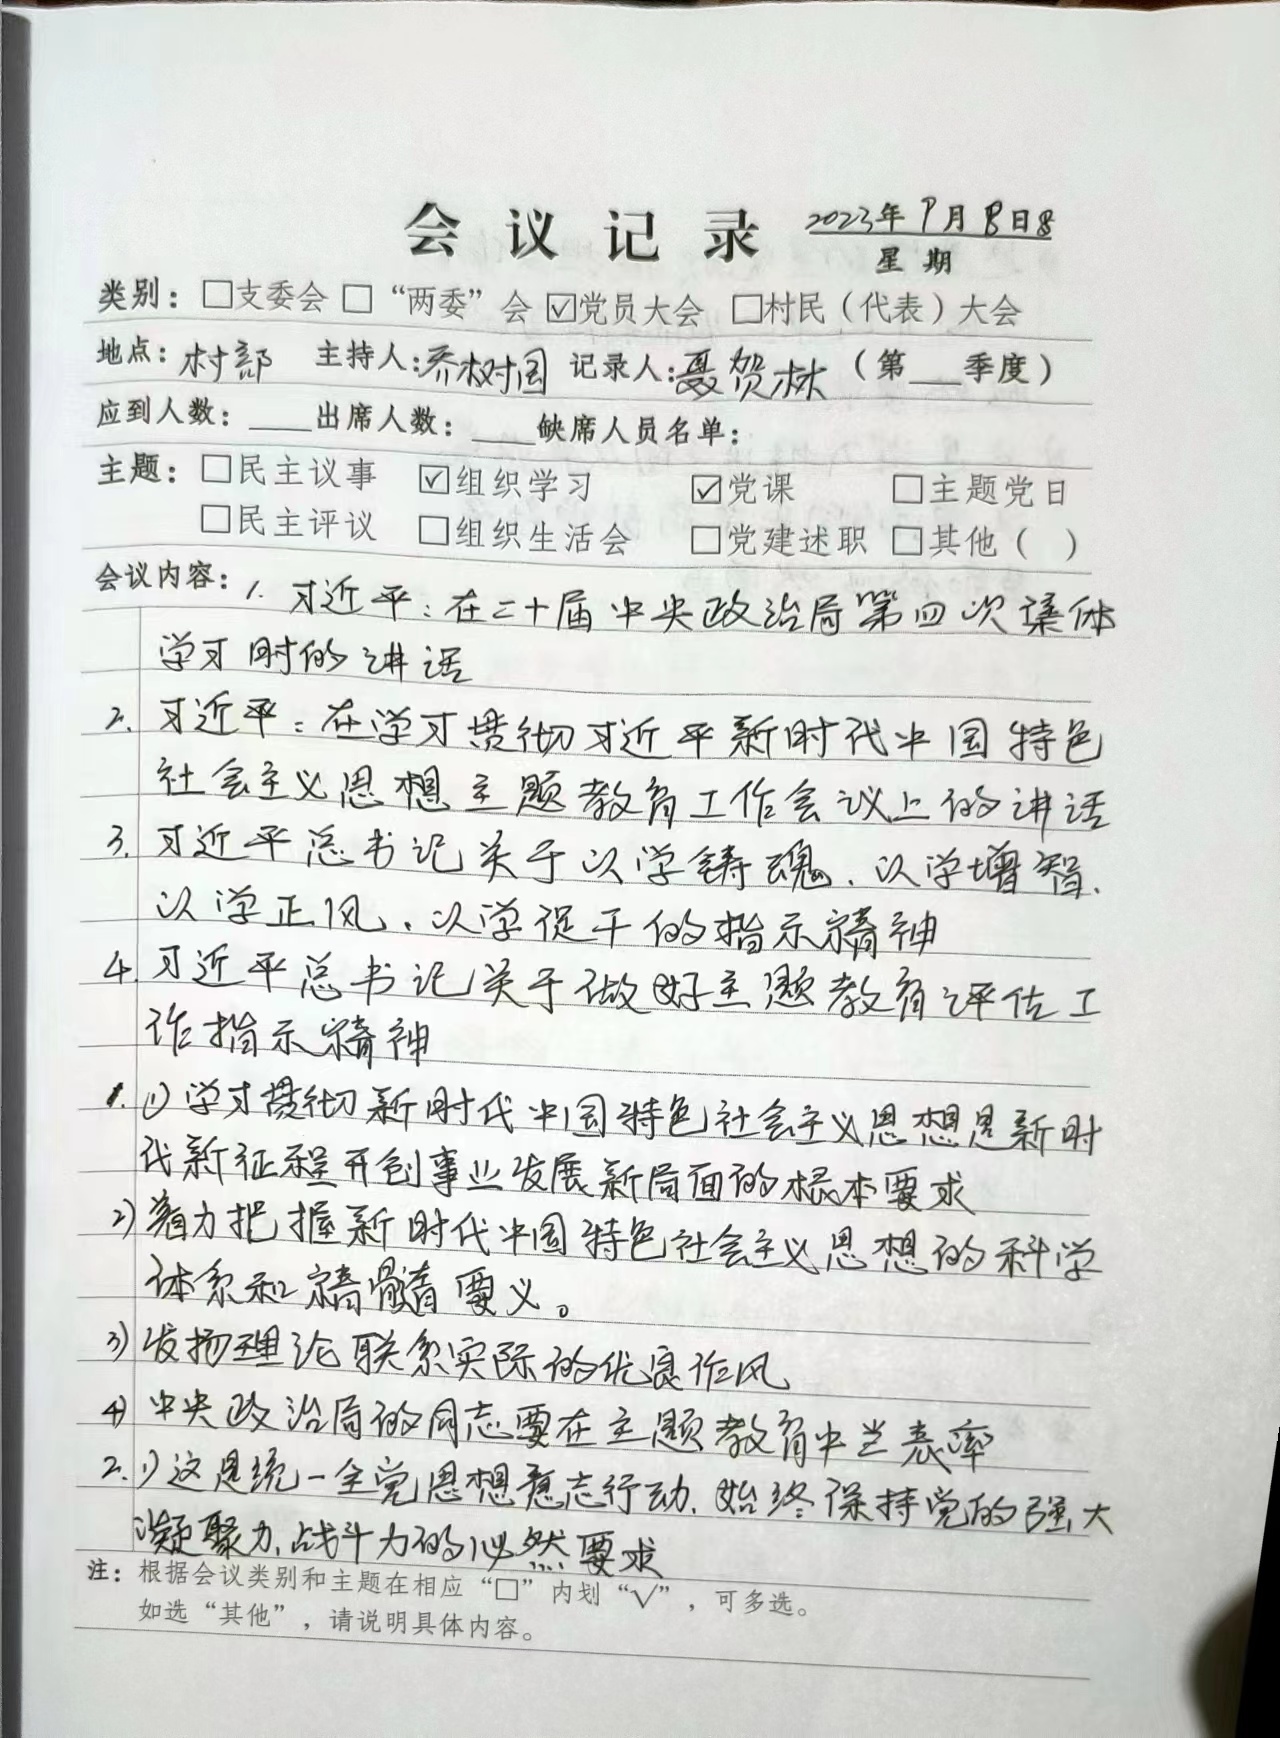 会议记录 2023年9月8日
星期
类别：□支委会 □“两委”会 ☑党员大会 □村民（代表）大会
地点：村部 主持人：乔树国 记录人：聂贺林（第___季度）
应到人数：____出席人数：____缺席人员名单：
主题：□民主议事 ☑组织学习 ☑党课 □主题党日
□民主评议 □组织生活会 □党建述职 □其他（ ）
会议内容：1. 习近平：在二十届中央政治局第四次集体
学习时的讲话
2. 习近平：在学习贯彻习近平新时代中国特色
社会主义思想主题教育工作会议上的讲话
3. 习近平总书记关于以学铸魂、以学增智、
以学正风、以学促干的指示精神
4. 习近平总书记关于做好主题教育评估工
作指示精神
1. 1)学习贯彻新时代中国特色社会主义思想是新时
代新征程开创事业发展新局面的根本要求
2)着力把握新时代中国特色社会主义思想的科学
体系和精髓要义。
3)发扬理论联系实际的优良作风
4)中央政治局的同志要在主题教育中当表率
2. 1)这是统一全党思想意志行动、始终保持党的强大
凝聚力、战斗力的必然要求
注：根据会议类别和主题在相应“□”内划“√”，可多选。
如选“其他”，请说明具体内容。